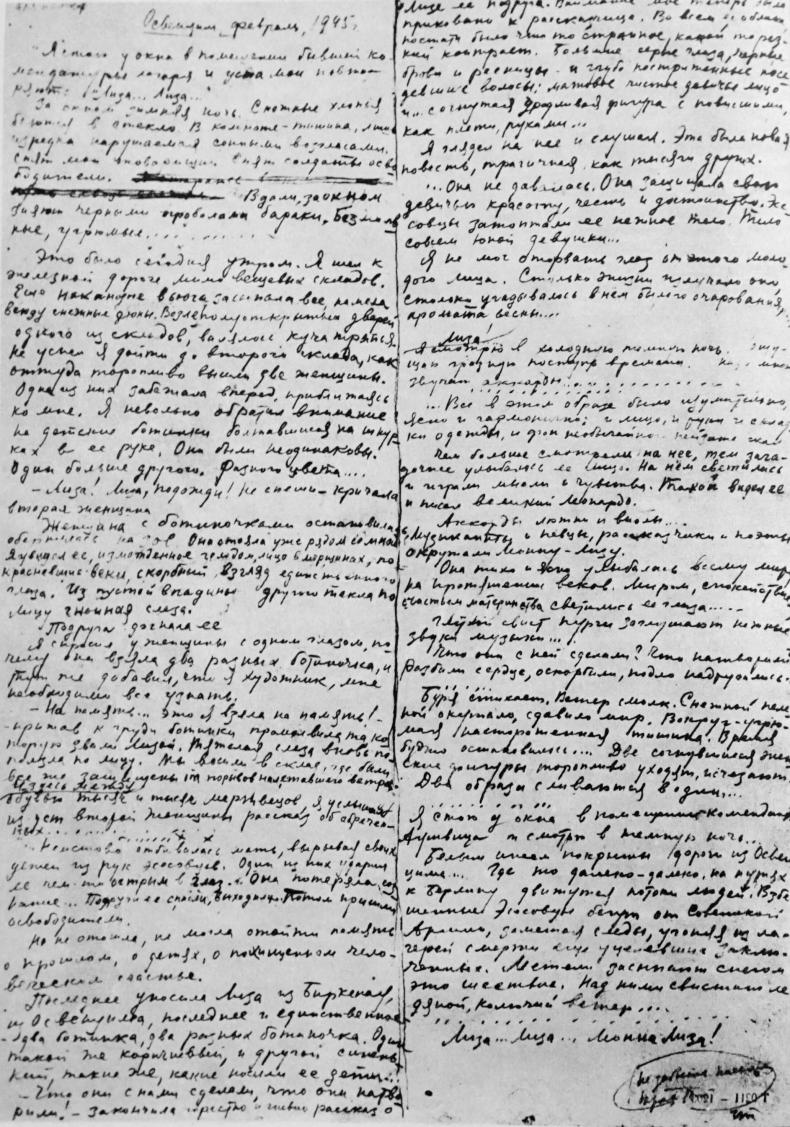 Освенцим, февраль, 1945г.
"Я стою у окна в помещении бывшей ко-
мендатуры лагеря и уста мои повто-
ряют: "Лиза... Лиза..."
За окном зимняя ночь. Снежные хлопья
бьются в стекло. В комнате - тишина, лишь
изредка нарушаемая сонными возгласами.
Спят мои товарищи. Спят солдаты осво-
бодители. Вдали, за окном
зияют черными провалами бараки. Безмолв-
ные, угрюмые...
Это было сегодня утром. Я шел к
железной дороге мимо вещевых складов.
Еще накануне вьюга засыпала все, намела
всюду снежные дюны. Возле полуоткрытых дверей
одного из складов, валялась куча тряпья.
Не успел я дойти до второго склада, как
оттуда торопливо вышли две женщины.
Одна из них забежала вперед, приближаясь
ко мне. Я невольно обратил внимание
на детские ботинки болтавшиеся на шнур-
ках в ее руке. Они были неодинаковы.
Один больше другого. Разного цвета....
- Лиза! Лиза, подожди! Не спеши - кричала
вторая женщина
Женщина с ботиночками остановилась
на зов. Она стояла уже рядом со мной
Я увидел ее, изможденное лицо в морщинах, по-
красневшие веки, скорбный взгляд единственного
глаза. Из пустой впадины другого текла по
лицу гнойная слеза.
Подруга догнала ее
Я спросил у женщины с одним глазом, по-
чему она взяла два разных ботиночка, и
тут же добавил, что я художник, мне
необходимо все узнать.
- На память... это я взяла на память! -
- прижав к груди ботинки промолвила та ко-
торую звали Лизой. Тяжелая слеза вновь по-
ползла по лицу. Мы вошли в склад, где были
все же защищены от порывов налетавшего ветра.
И здесь между
обувью тысяч и тысяч мертвецов, я услышал
из уст второй женщины рассказ об обречен-
ных...
Неистово отбивалась мать, вырывая своих
детей из рук эсэсовцев. Один из них ударил
ее чем-то острым в глаз. Она потеряла соз-
нание... Подруги ее спасли, выходили. Потом пришли
освободители.
Но не отошла, не могла отойти память
о прошлом, о детях, о похищенном чело-
веческом счастье.
Последнее уносила Лиза из Биркенау,
из Освенцима, последнее и единственное
- два ботинка, два разных ботиночка. Один
такой же коричневый, и другой синень-
кий, такие же, какие носили ее дети...
- Что они с нами сделали, что они натво-
рили! - закончила горестно и гневно рассказ о
Лизе ее подруга. Внимание мое теперь было
приковано к рассказчице. Во всем ее облике
постати было что то странное, какой то рез-
кий контраст. Большие серые глаза, черные
брови и ресницы - и глубо постриженные посе-
девшие волосы; матовое чистое девичье лицо
и... согнутая уродливая фигура с повисшими,
как плети, руками...
Я глядел на нее и слушал. Это была новая
повесть, трагичная как тысячи других.
...Она не давалась. Она защищала свою
девичью красоту, честь и достоинство. Эсэ-
совцы затоптали ее нежное тело. Тело
совсем юной девушки...
Я не мог оторвать глаз от этого моло-
дого лица. Столько жизни излучало оно,
столько угадывалось в нем былого очарования,
аромата весны...
Лиза!
Я смотрю в холодную темную ночь.
грозную поступь времени.
звучат аккорды...
...Все в этом образе было изумительно,
ясно и гармонично: и лицо, и руки и склад-
ки одежды, и фон необычного пейзажа
Чем больше смотрели на нее, тем зага-
дочнее улыбалось ее лицо. На нем светились
и играли мысли и чувства. Такой видел ее
и писал великий Леонардо.
Аккорды лютни и виолы...
Музыканты и певцы, рассказчики и поэты
окружали Монну-Лизу.
Она тихо и ясно улыбалась всему миру
на протяжении веков. Миром, спокойствием
счастьем материнства светились ее глаза...
свист пурги заглушает нежные
звуки музыки...
Что они с ней сделали? Что натворили?
Разбили сердце, оскорбили, подло надругались.
Буря стихает. Ветер смолк. Снежной пеле-
ной окутало, сдавило мир. Вокруг - угрю-
мая настороженная тишина. Время
будто остановилось... Две согнувшиеся жен-
ские фигуры торопливо уходят, исчезают.
Два образа сливаются в один...
Я стою у окна в помещении комендатуры
Аушвица и смотрю в темную ночь...
Белым инеем покрыты дороги из Освен-
цима... Где то далеко-далеко, на путях
к Берлину движутся потоки людей. Взбе-
шенные эсэсовцы бегут от Советской
Армии, заметая следы, угоняя из ла-
герей смерти еще уцелевших заклю-
ченных. Метели засыпают снегом
это шествие. Над ними свистит ле-
дяной, колючий ветер....
Лиза... Лиза..., Монна Лиза!